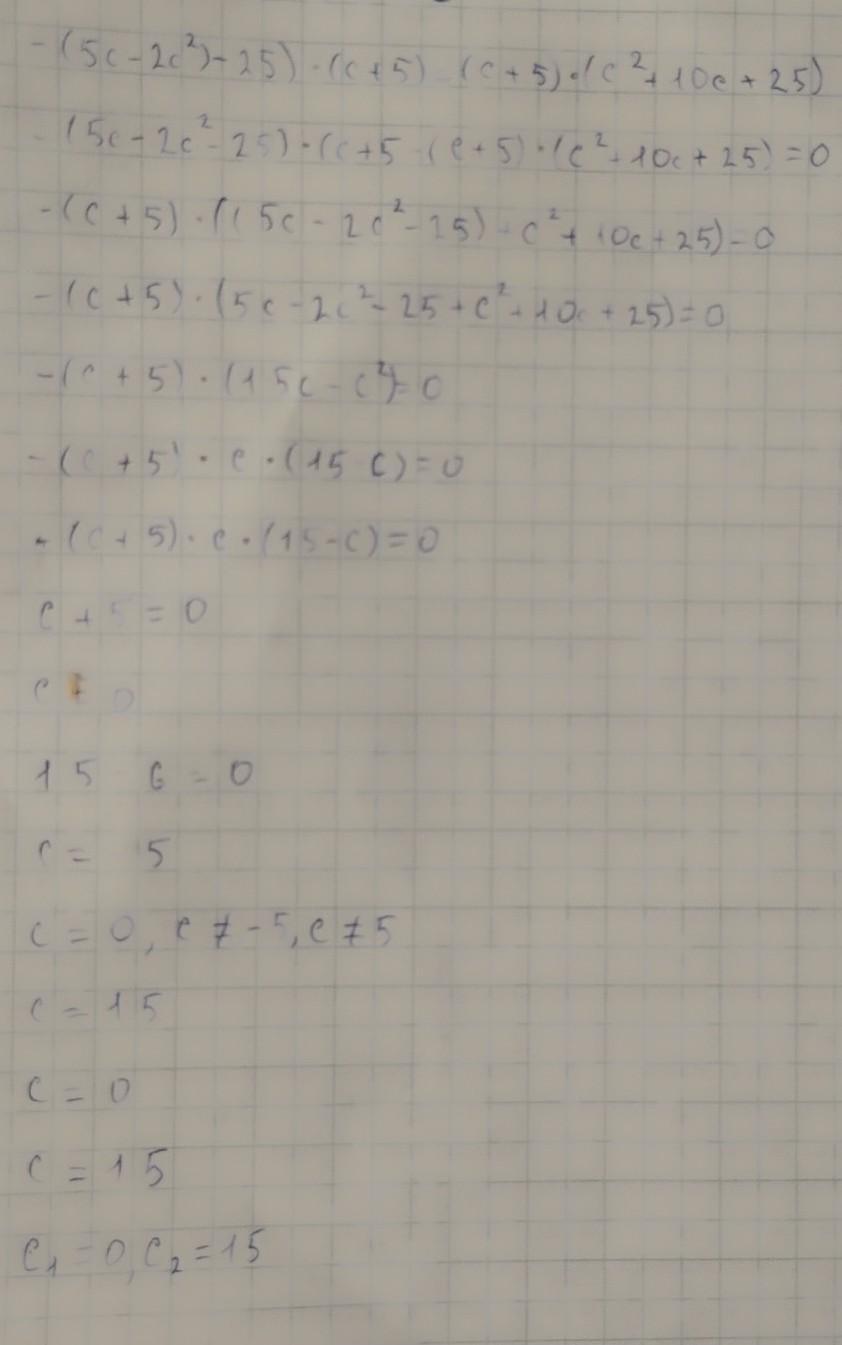 -(5c-2c²)-25)·(c+5)-(c+5)·(c²+10c+25)
-(5c-2c²-25)·(c+5-(c+5)·(c²+10c+25)=0
-(c+5)·((5c-2c²-25)-c²+10c+25)=0
-(c+5)·(5c-2c²-25+c²+10c+25)=0
-(c+5)·(15c-c²)=0
-(c+5)·c·(15 c)=0
-(c+5)·c·(15-c)=0
c+5=0
c 0
15 c=0
c= 5
c=0, c≠-5, c≠5
c=15
c=0
c=15
c₁=0, c₂=15